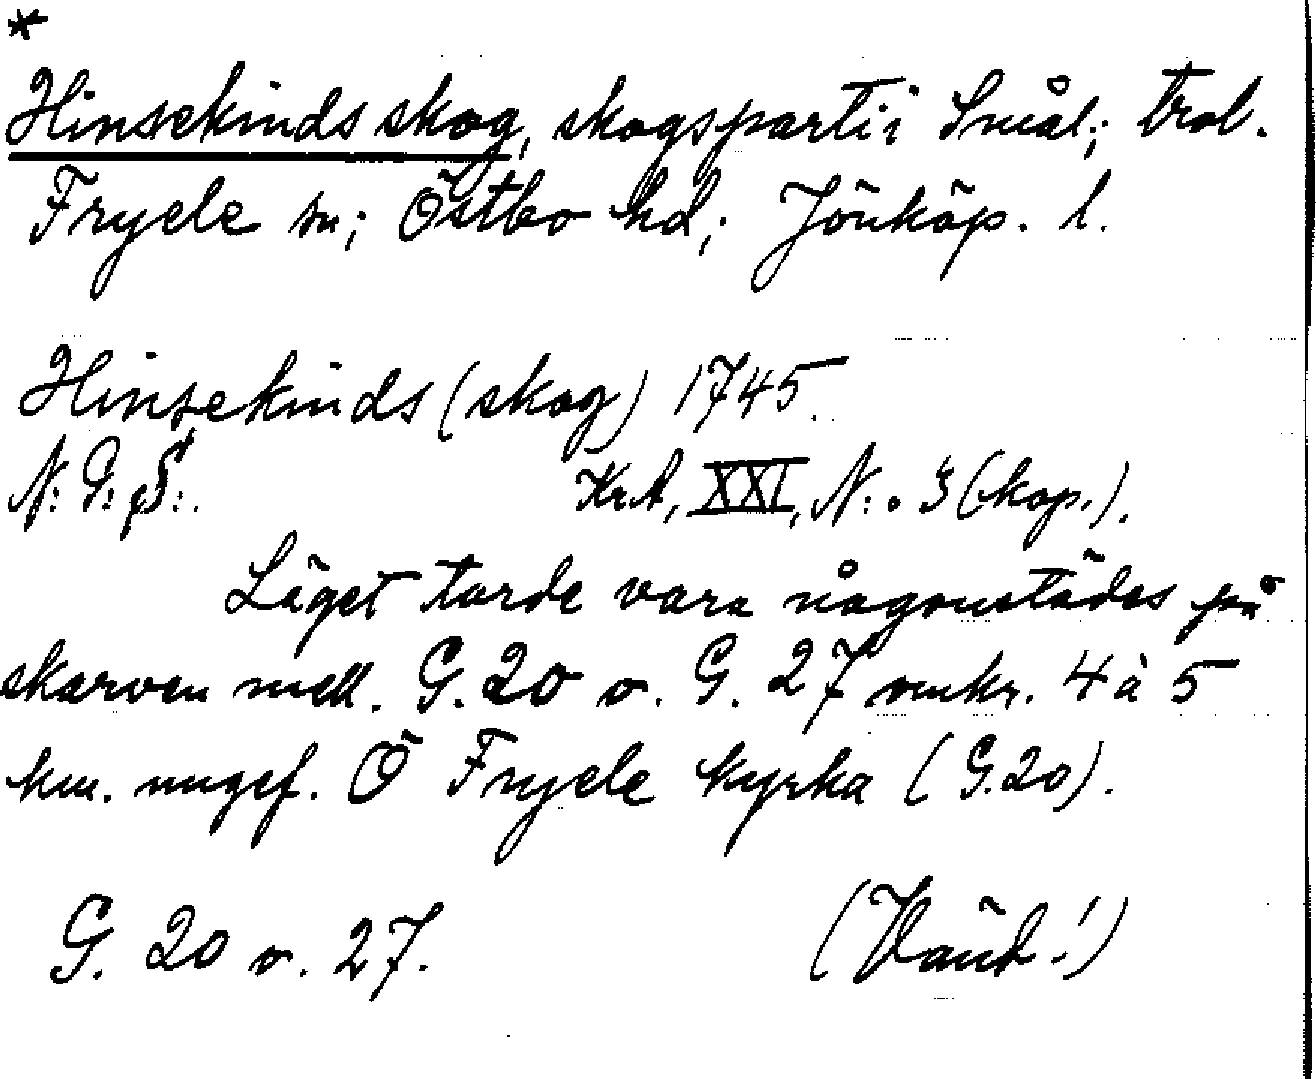 *
Hinsekinds skog, skogsparti i Smål.; trol.
Fryele sn; Östbo hd; Jönköp. l.
Hinsekinds (skog) 1745.
N: G: S:.
KrA, XXI, N: o 3 (kop.).
Läget torde vara någonstädes på
skarven mell. G. 20 o. G. 27 omkr. 4 à 5
km. ungef. Ö Fryele kyrka (G.20).
G. 20 o. 27.
(Vänd!)